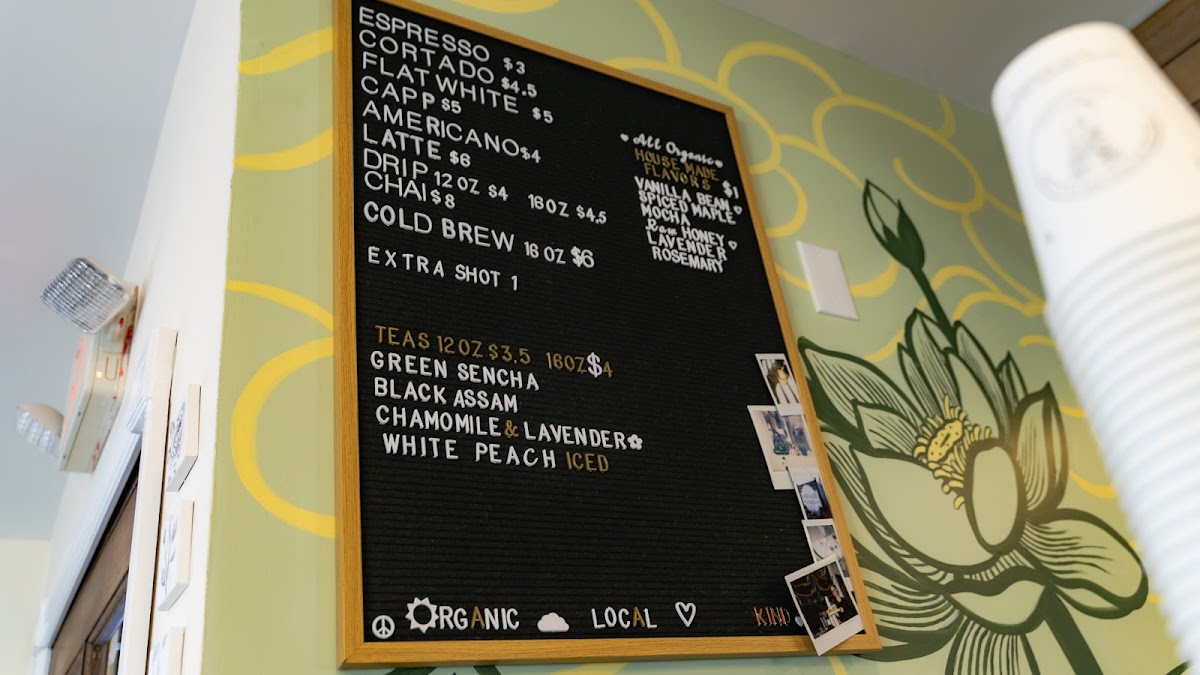 ESPRESSO $3
CORTADO $4.5
FLAT WHITE $5
CAPP $5
AMERICANO $4
LATTE $6
DRIP 12 OZ $4 16OZ $4.5
CHAI $8
COLD BREW 16 OZ $6
EXTRA SHOT 1
All Organic
HOUSE MADE
FLAVORS $1
VANILLA BEAN
SPICED MAPLE
MOCHA
Raw HONEY
LAVENDER
ROSEMARY
TEAS 12OZ $3.5 16OZ $4
GREEN SENCHA
BLACK ASSAM
CHAMOMILE & LAVENDER
WHITE PEACH ICED
ORGANIC LOCAL KIND